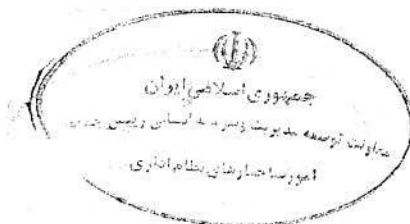 جمهوری اسلامی ایران
معاونت توسعه مدیریت و سرمایه انسانی رییس جمهور
امور ساختارهای نظام اداری